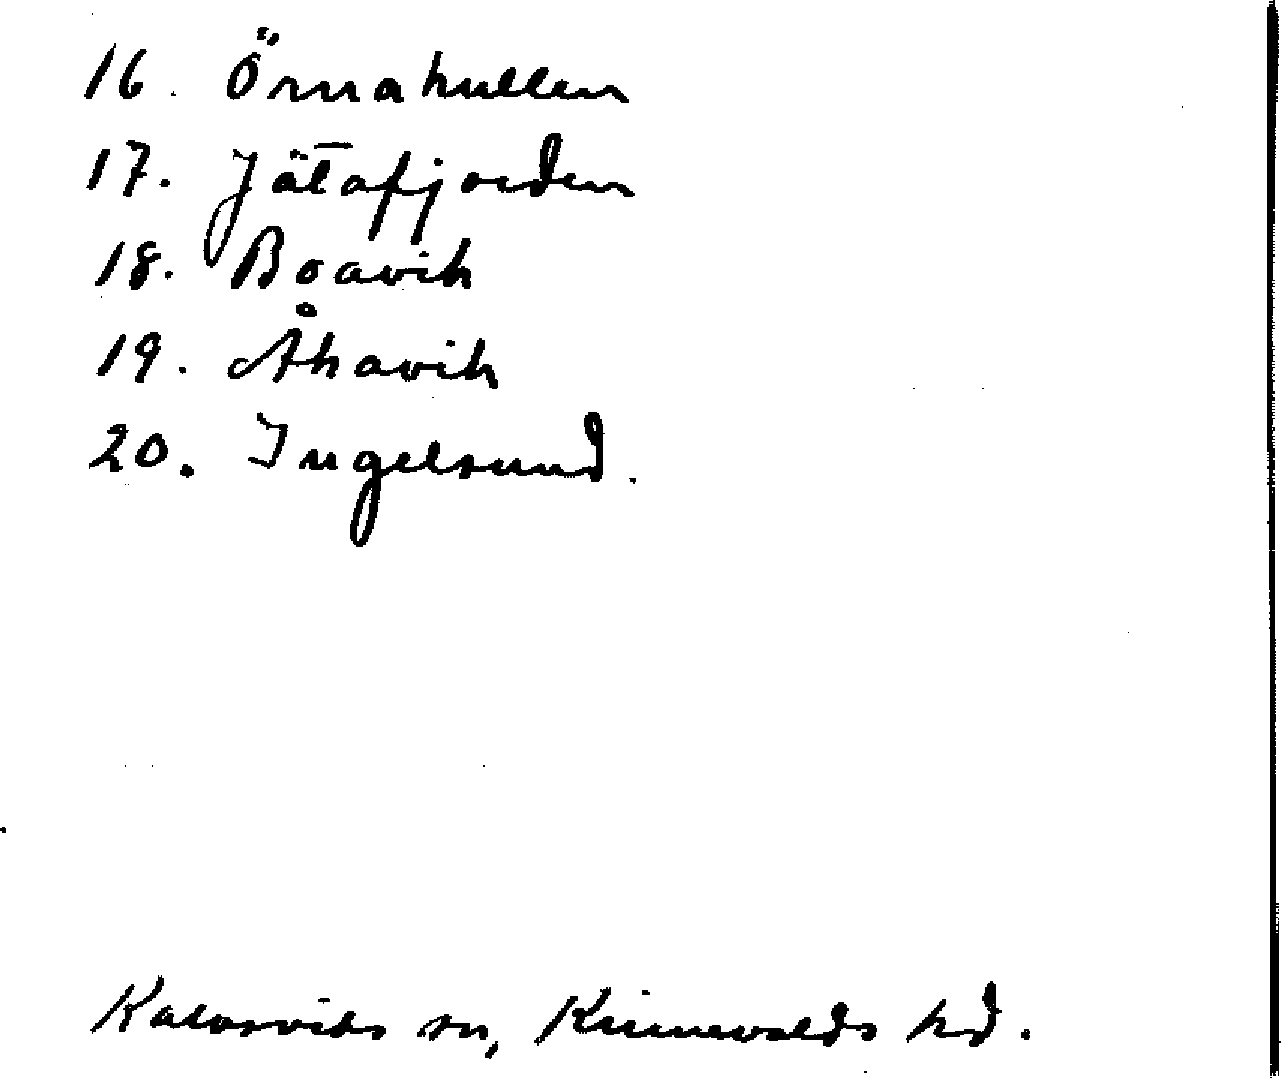 16. Örnakullen
17. Jätafjorden
18. Boavik
19. Åkavik
20. Ingelsund.
Kalvsviks sn, Kinnevalds hd.